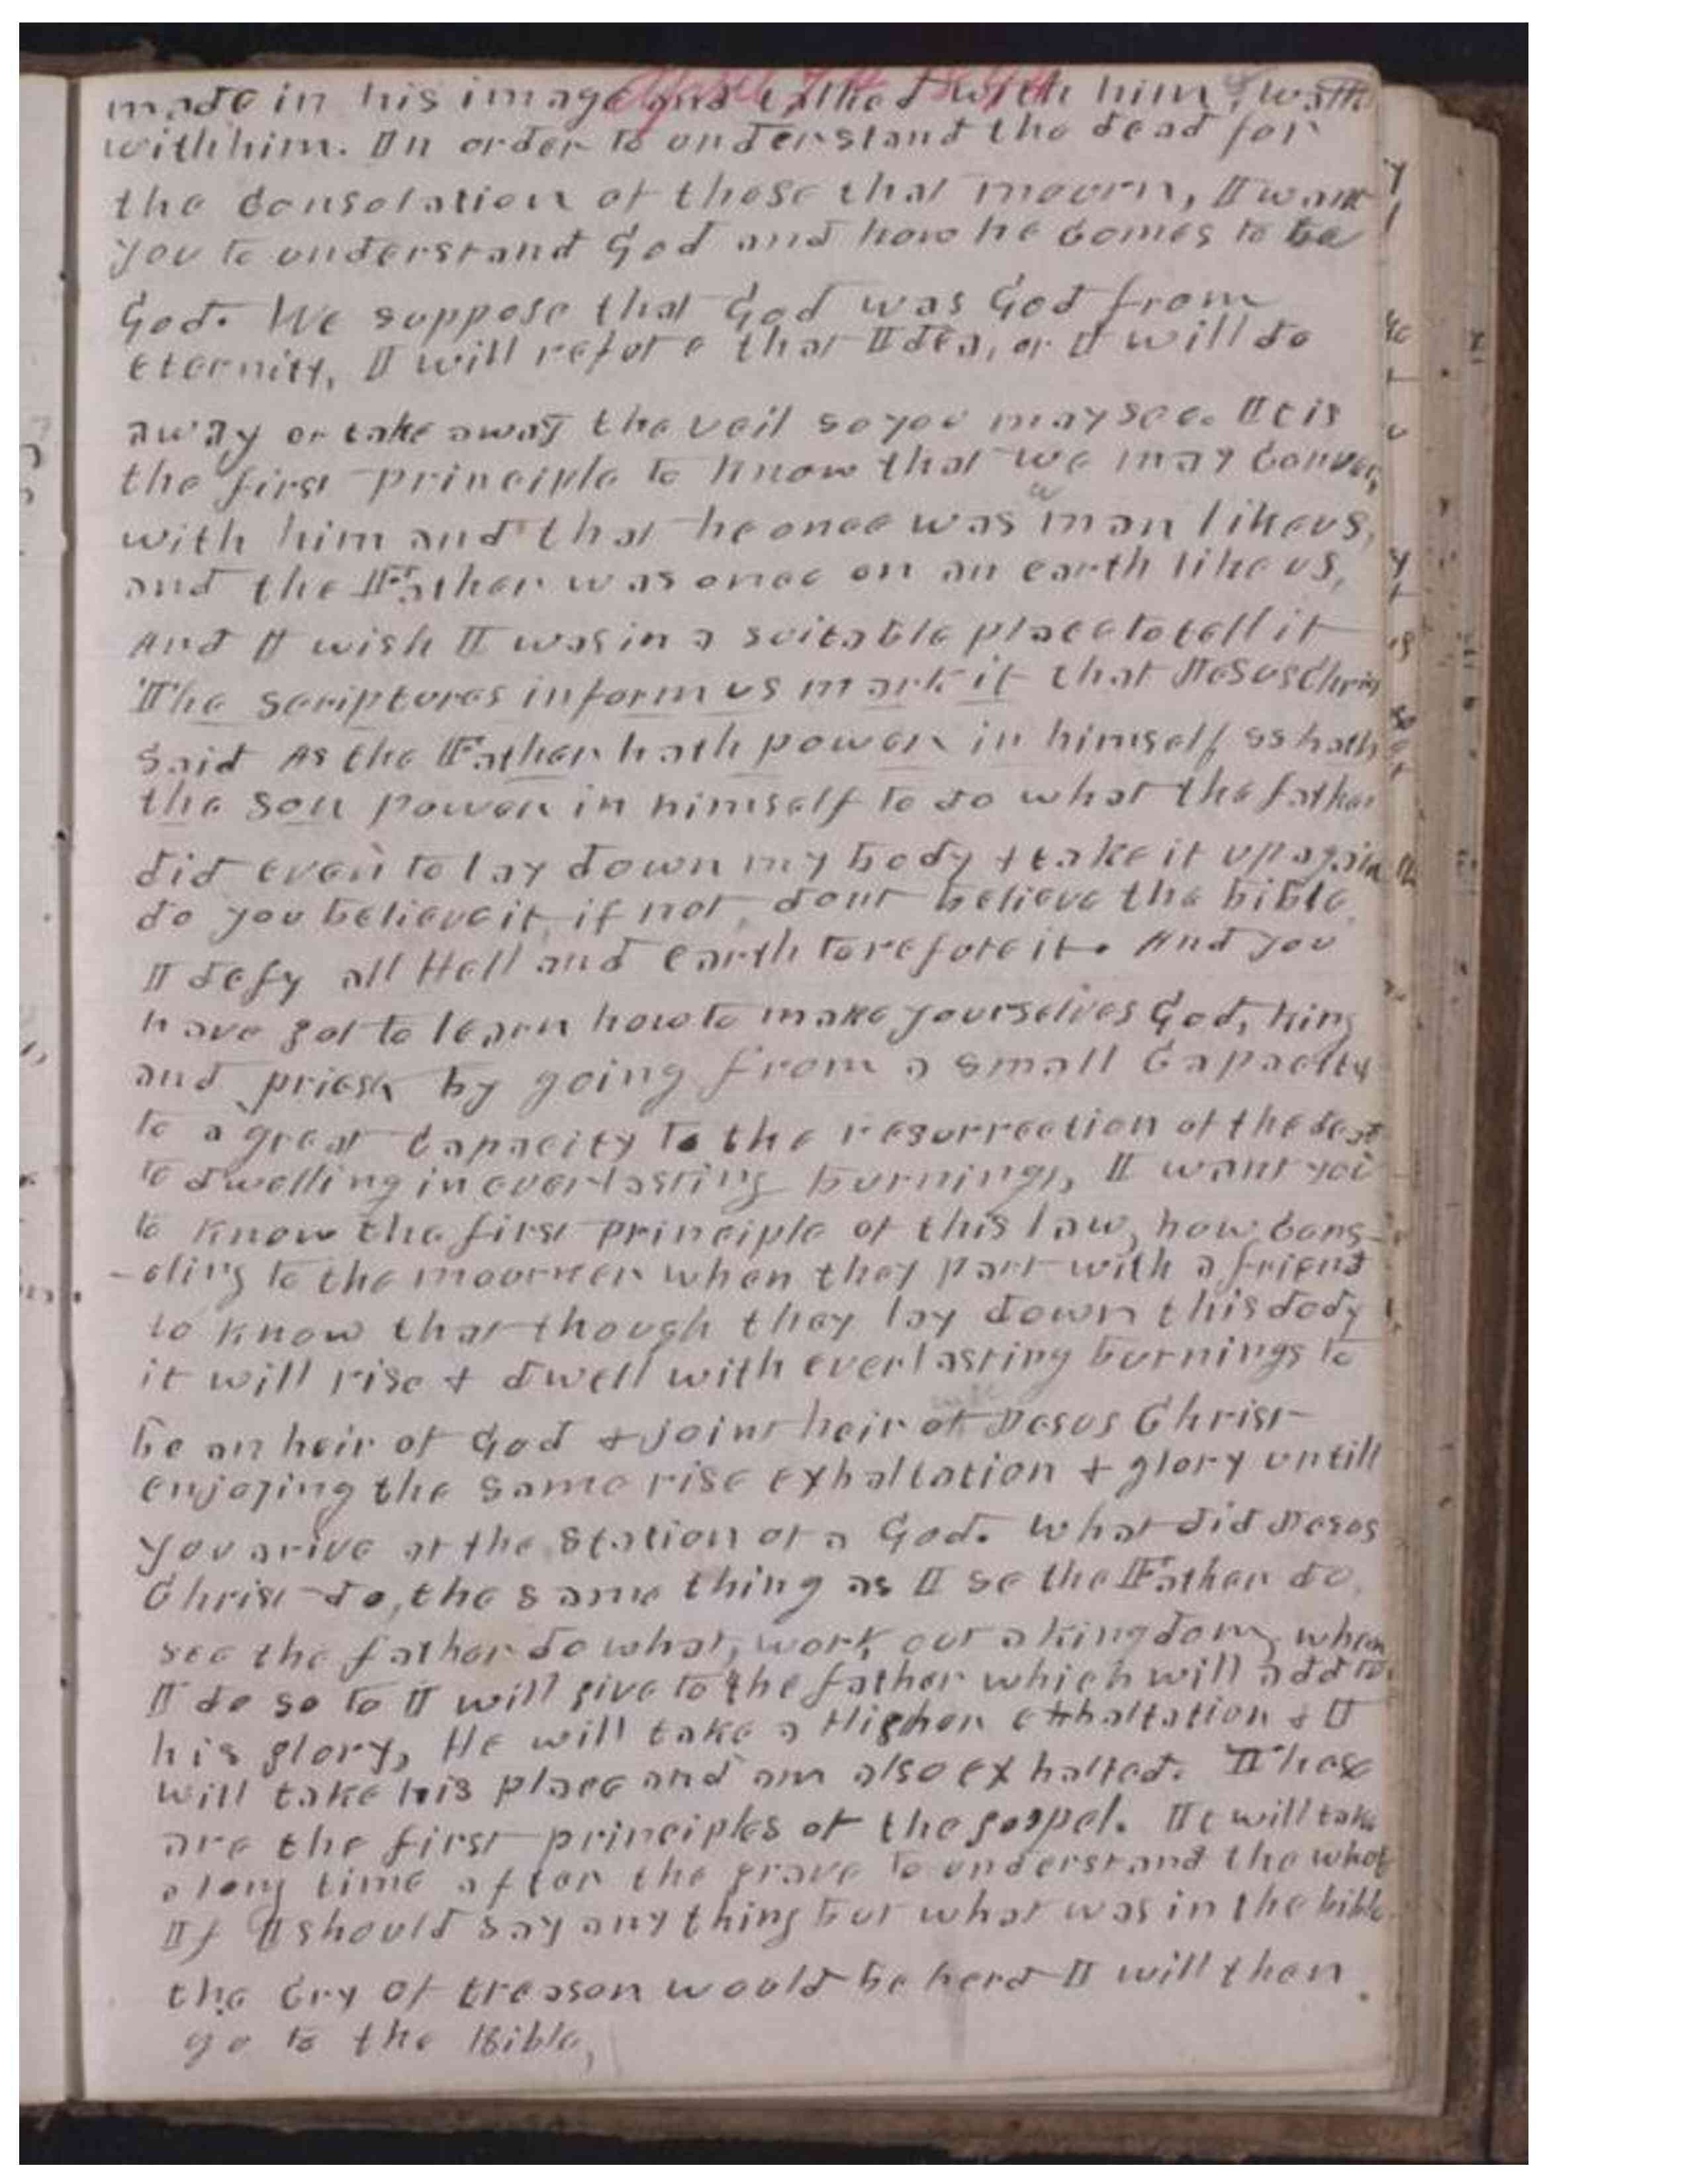 April 7th 1844
made in his image and talked with him & walk
with him. In order to understand the dead for
the consolation of those that mourn, I want
you to understand God and how he comes to be
God. We suppose that God was God from
eternity, I will refute that Idea, or I will do
away or take away the veil so you may see. It is
the first principle to know that we may convers,
with him and that he once was a man like us,
and the Father was once on an earth like us,
And I wish I was in a suitable place to tell it
The scriptures inform us mark it that Jesus Chris
Said As the Father hath power in himself so hath
the son power in himself to do what the father
did even to lay down my body & take it up again
do you believe it, if not, dont believe the bible,
I defy all Hell and earth to refute it. And you
have got to learn how to make yourselves God, king
and priest by going from a small capacity
to a great capacity to the resurrection of the dead
to dwelling in everlasting burnings, I want you
to know the first principle of this law, how cons-
-oling to the mourner when they part with a friend
to know that though they lay down this dody
it will rise & dwell with everlasting burnings to
be an heir of God & joint heir of Jesus Christ
enjoying the same rise exhaltation & glory untill
you arive at the station of a God. What did Jesus
Christ do, the same thing as I se the Father do,
see the father do what, work out a kingdom, when
I do so to I will give to the father which will add to
his glory, He will take a Higher exhaltation & I
will take his place and am also exhalted. These
are the first principles of the gospel. It will take
a long time after the grave to understand the whol
If I should say any thing but what was in the bible
the cry of treason would be herd I will then
go to the Bible,